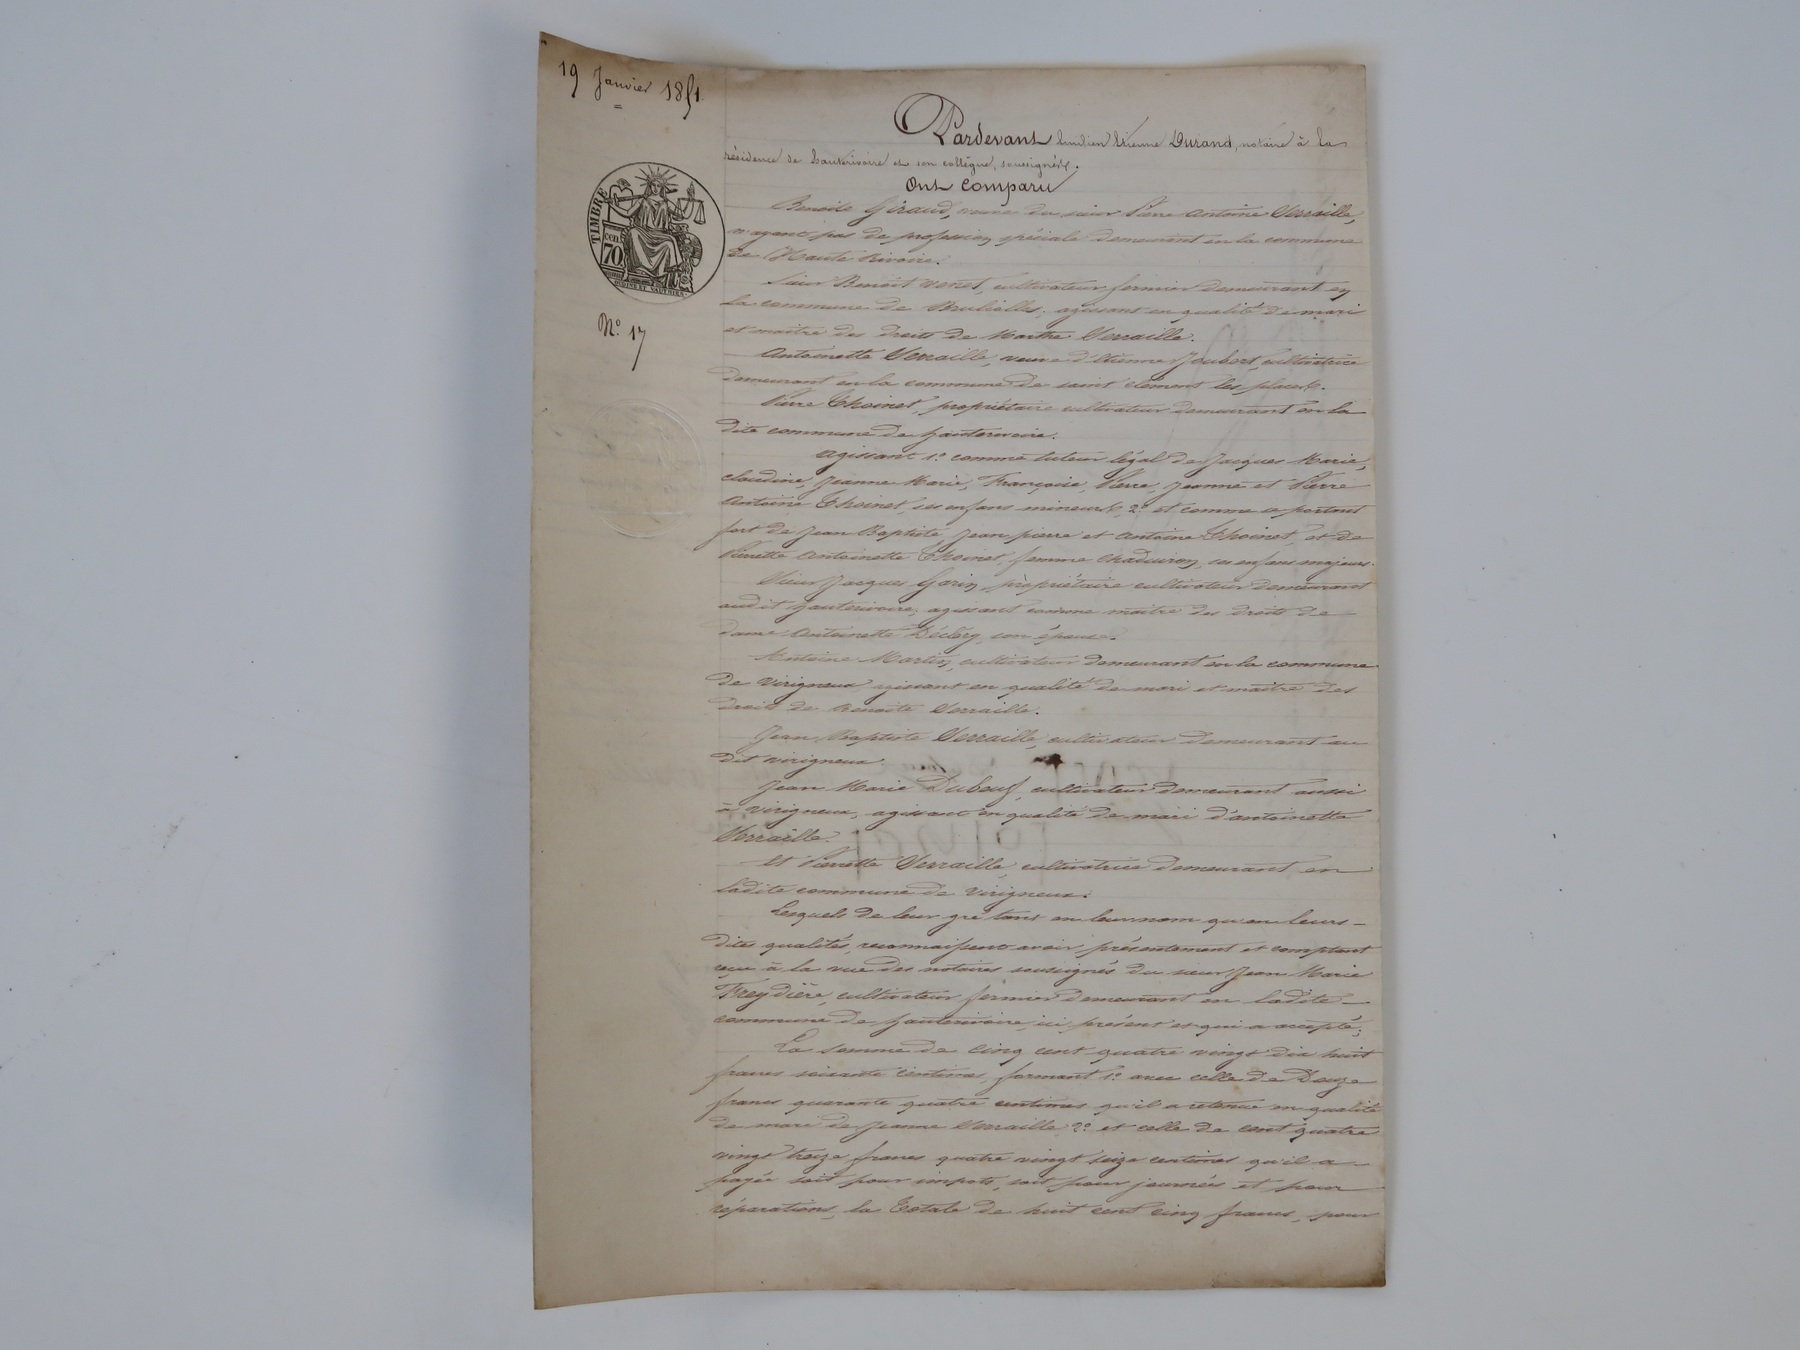 19 Janvier 1851
Pardevant Etienne Durand, notaire à la
résidence de hauterivoire et son collègue, soussignés.
Ont Comparu
TIMBRE
cen
70
Nº 17
Benoite Giraud, veuve du sieur Pierre Antoine Verraille,
n'ayant pas de profession spéciale demeurant en la commune
de Haute Rivoire.
Sieur Benoît Venet, cultivateur fermier demeurant en
la commune de Brulioles, agissant en qualité de mari
et maître des droits de Marthe Verraille.
Antoinette Verraille, veuve d'Etienne Joubert, cultivatrice
demeurant en la commune de saint clément les places.
Pierre Thoinet, propriétaire cultivateur demeurant en la
dite commune de hauterivoire.
Agissant 1º comme tuteur légal de Jacques Marie,
claudine, Jeanne Marie, Françoise, Pierre, Jeanne et Pierre
Antoine Thoinet, ses enfans mineurs, 2º et comme se portant
fort de Jean Baptiste, Jean pierre et Antoine Thoinet, et de
Pierrette Antoinette Thoinet, femme Chaduiron, ses enfans majeurs.
Sieur Jacques Garin, propriétaire cultivateur demeurant
audit hauterivoire, agissant comme maître des droits de
dame Antoinette Décléry, son épouse.
Antoine Martin, cultivateur demeurant en la commune
de Virigneux, agissant en qualité de mari et maître des
droits de Benoite Verraille.
Jean Baptiste Verraille, cultivateur demeurant au
dit virigneux.
Jean Marie Dubeuf, cultivateur demeurant aussi
à Virigneux, agissant en qualité de mari d'antoinette
Verraille.
Et Pierrette Verraille, cultivatrice demeurant en
ladite commune de Virigneux.
Lesquels de leur gré tant en leur nom qu'en leurs
dites qualités, reconnaissent avoir présentement et comptant
reçu à la vue des notaires soussignés du sieur Jean Marie
Freydière, cultivateur fermier demeurant en ladite
commune de hauterivoire, ici présent et qui a accepté,
La somme de cinq cent quatre vingt dix huit
francs soixante centimes, formant 1º avec celle de Douze
francs quarante quatre centimes qu'il a retenue en qualité
de mari de Jeanne Verraille 2º et celle de cent quatre
vingt treize francs quatre vingt seize centimes qu'il a
payée soit pour impots, soit pour journées et pour
réparations, la totale de huit cent cinq francs, pour